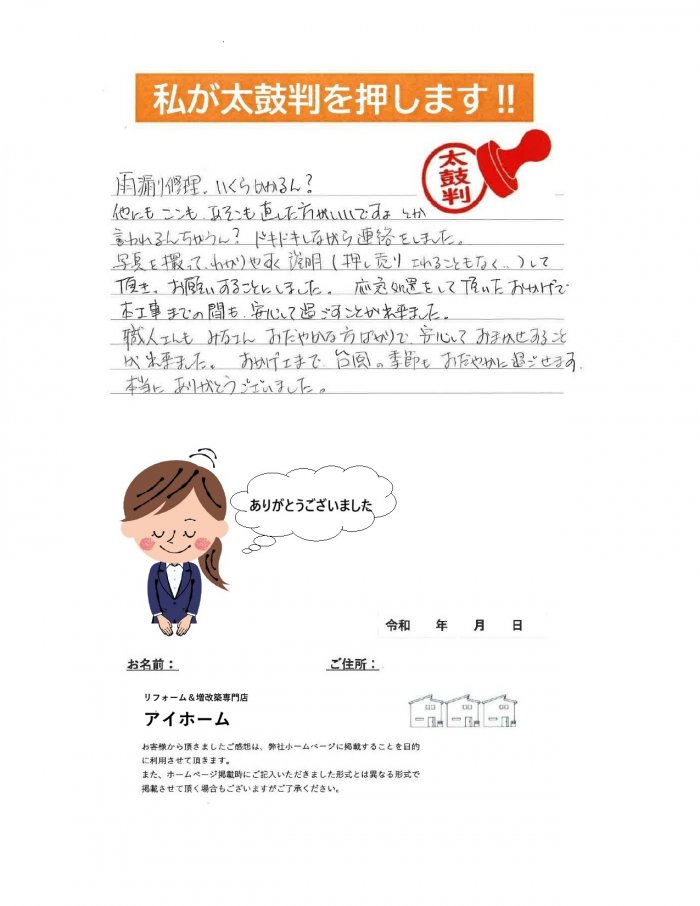 私が太鼓判を押します!!
太鼓判
雨漏り修理、いくらかかるん?
他にもここも、あそこも直した方がいいですよ とか
言われるんちゃうん? ドキドキしながら連絡をしました。
写真を撮って、わかりやすく説明(押し売りされることもなく..)して
頂き、お願いすることにしました。 応急処置をして頂いたおかげで
本工事までの間も、安心して過ごすことが出来ました。
職人さんも みなさん おだやかな方ばかりで、安心しておまかせすること
が出来ました。 おかげさまで、台風の季節も おだやかに過ごせます。
本当に ありがとうございました。
ありがとうございました
令和 年 月 日
お名前: ご住所:
リフォーム&増改築専門店
アイホーム
お客様から頂きましたご感想は、弊社ホームページに掲載することを目的
に利用させて頂きます。
また、ホームページ掲載時にご記入いただきました形式とは異なる形式で
掲載させて頂く場合もございますがご了承ください。